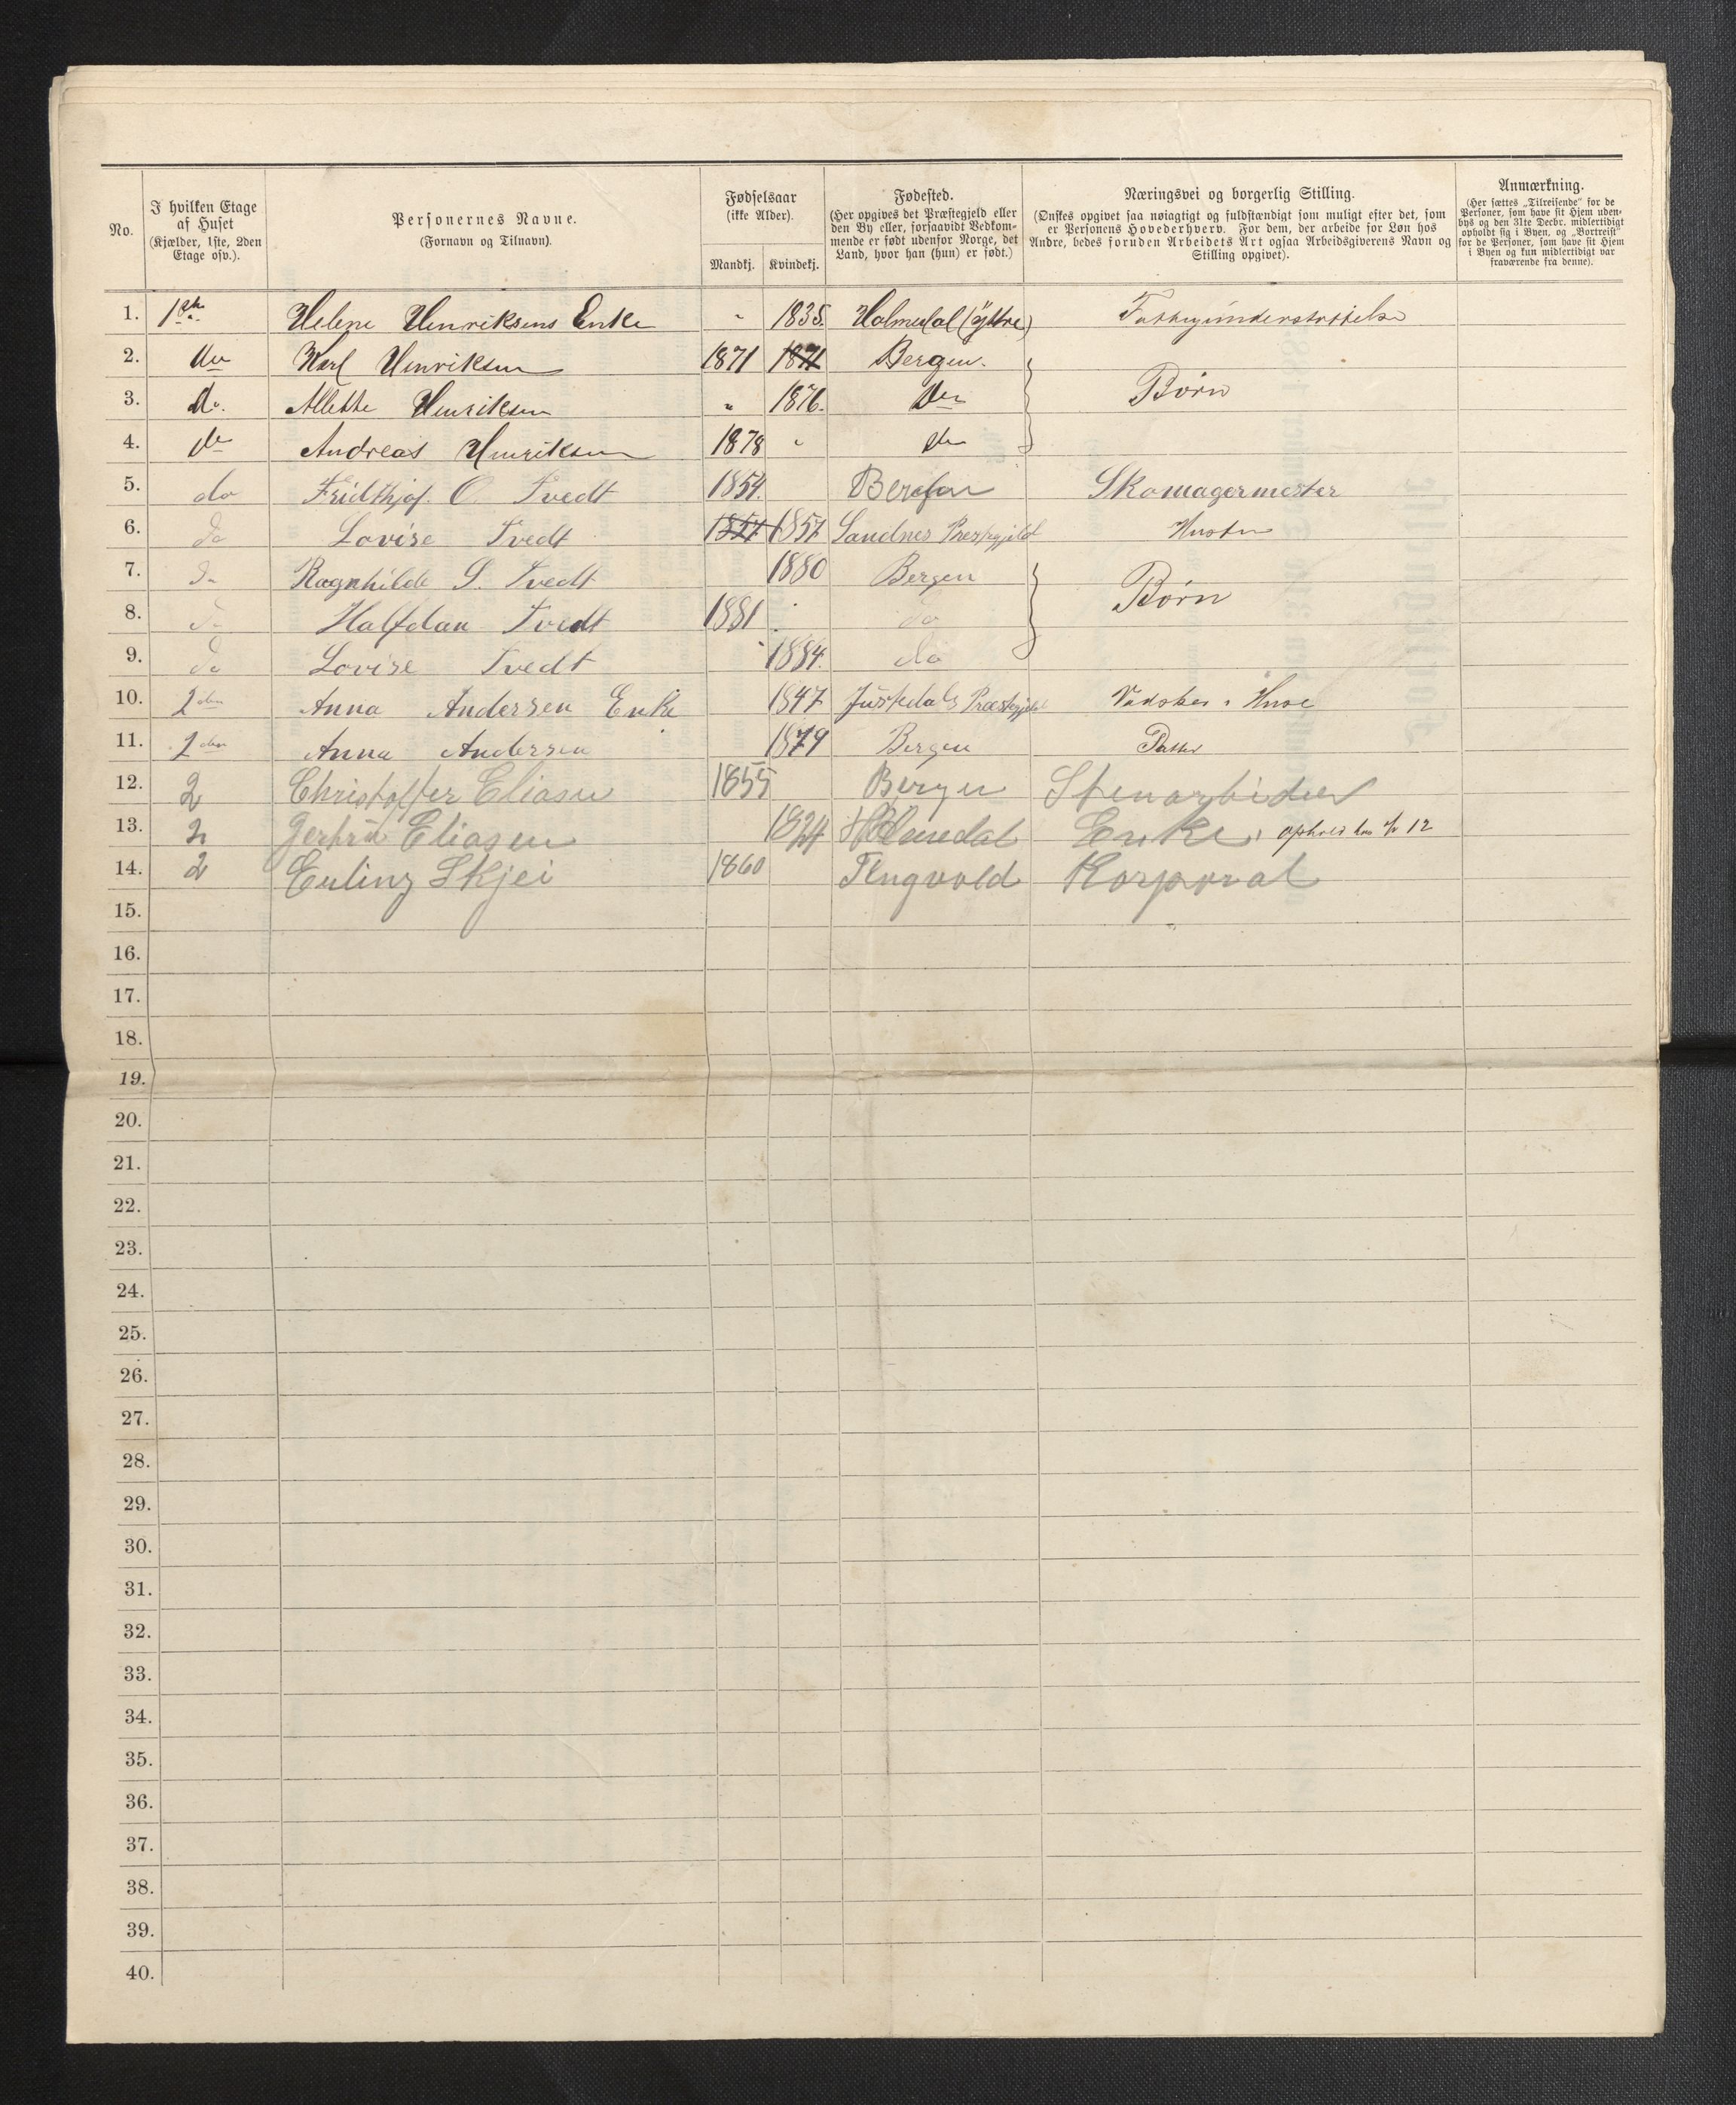 No.
I hvilken Etage af Huset (Kjælder, 1ste, 2den Etage osv.).
Personernes Navne. (Fornavn og Tilnavn).
Fødselsaar (ikke Alder).
Mandkj. Kvindekj.
Fødested. (Her opgives det Præstegjeld eller den By eller, forsaavidt Vedkommende er født udenfor Norge, det Land, hvor han (hun) er født.)
Næringsvei og borgerlig Stilling. (Ønskes opgivet saa nøiagtigt og fuldstændigt som muligt efter det, som er Personens Hovederhverv. For dem, der arbeide for Løn hos Andre, bedes foruden Arbeidets Art ogsaa Arbeidsgiverens Navn og Stilling opgivet).
Anmærkning. (Her sættes „Tilreisende" for de Personer, som have sit Hjem udenbys og den 31te Decbr. midlertidigt opholdt sig i Byen, og „Bortreist" for de Personer, som have sit Hjem i Byen og kun midlertidigt var fraværende fra denne).
1. 1ste Helene Henriksens Enke " 1835. Holmedal (Yttre) Fattigunderstøttelse
2. do Karl Henriksen 1871 1871 Bergen.
3. do. Allette Henriksen " 1876. do Børn
4. do Andreas Henriksen 1878 " do
5. do Fridthjof. O. Tvedt 1854. Bergen Skomagermester
6. do Lovise Tvedt 1857 1857 Sandnes Prestgjeld Hustru
7. do Ragnhilde S. Tvedt 1880 Bergen
8. do Halfdan Tvedt 1881 do Børn
9. do Lovise Tvedt 1884. do
10. 2den Anna Andersen Enke 1847 Justedals Præstegjeld Vadsker i Huse
11. 2den Anna Andersen 1879 Bergen Datter
12. 2 Christoffer Eliasen 1855 Bergen Stenarbeider
13. 2 Gertrü Eliasen 1824 Holmedal Enke, ophold hos No 12
14. 2 Erling Skjei 1860 Tingvold Korporal
15.
16.
17.
18.
19.
20.
21.
22.
23.
24.
25.
26.
27.
28.
29.
30.
31.
32.
33.
34.
35.
36.
37.
38.
39.
40.